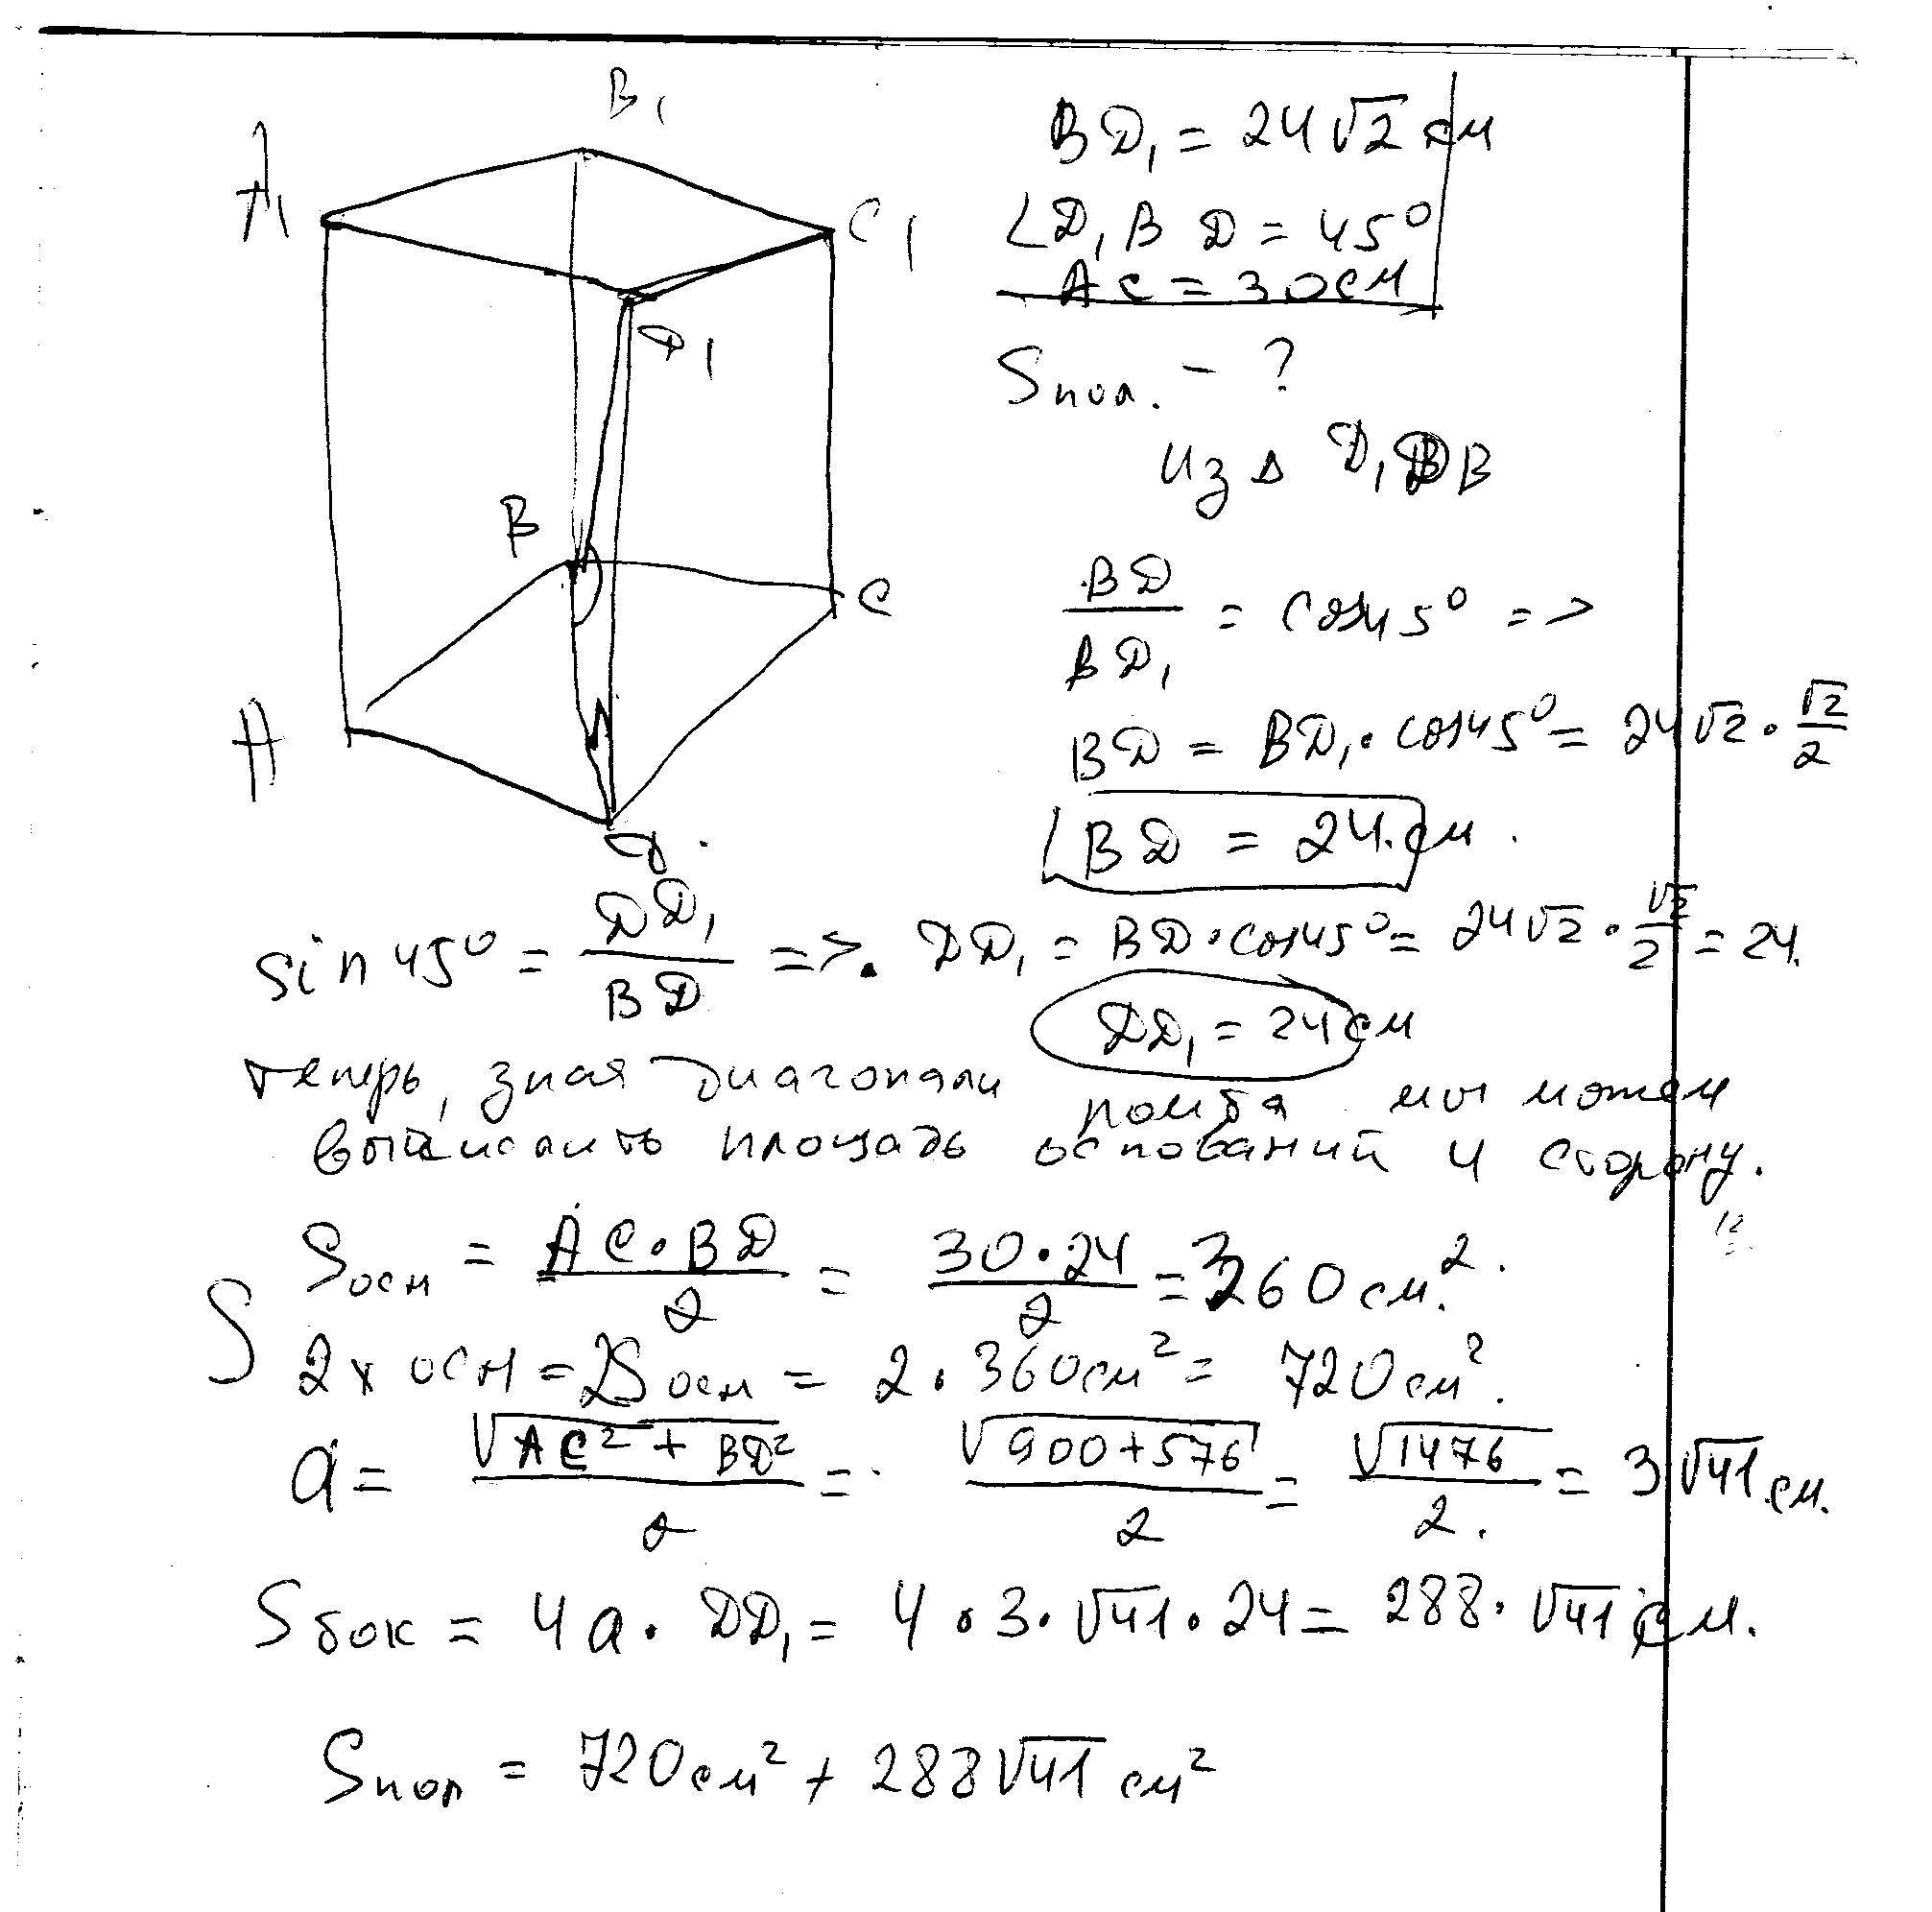 B₁
A₁
C₁
D₁
B
C
A
D
BD₁ = 24√2 см
∠D₁BD = 45°
AC = 30 см
Sпол. - ?
из Δ D₁DB
BD/BD₁ = cos45° =>
BD = BD₁·cos45° = 24√2 · √2/2
BD = 24 см.
sin45° = DD₁/BD =>. DD₁ = BD·cos45° = 24√2 · √2/2 = 24.
DD₁ = 24 см
теперь, зная диагонали ромба мы можем
вычислить площадь оснований и сторону.
Sосн = AC·BD/2 = 30·24/2 = 360 см².
S 2х осн = 2Sосн = 2·360см² = 720 см².
a = √(AC² + BD²)/2 = √(900+576)/2 = √1476/2 = 3√41 см.
Sбок = 4a·DD₁ = 4·3·√41·24 = 288·√41 см.
Sпол = 720см² + 288√41 см²